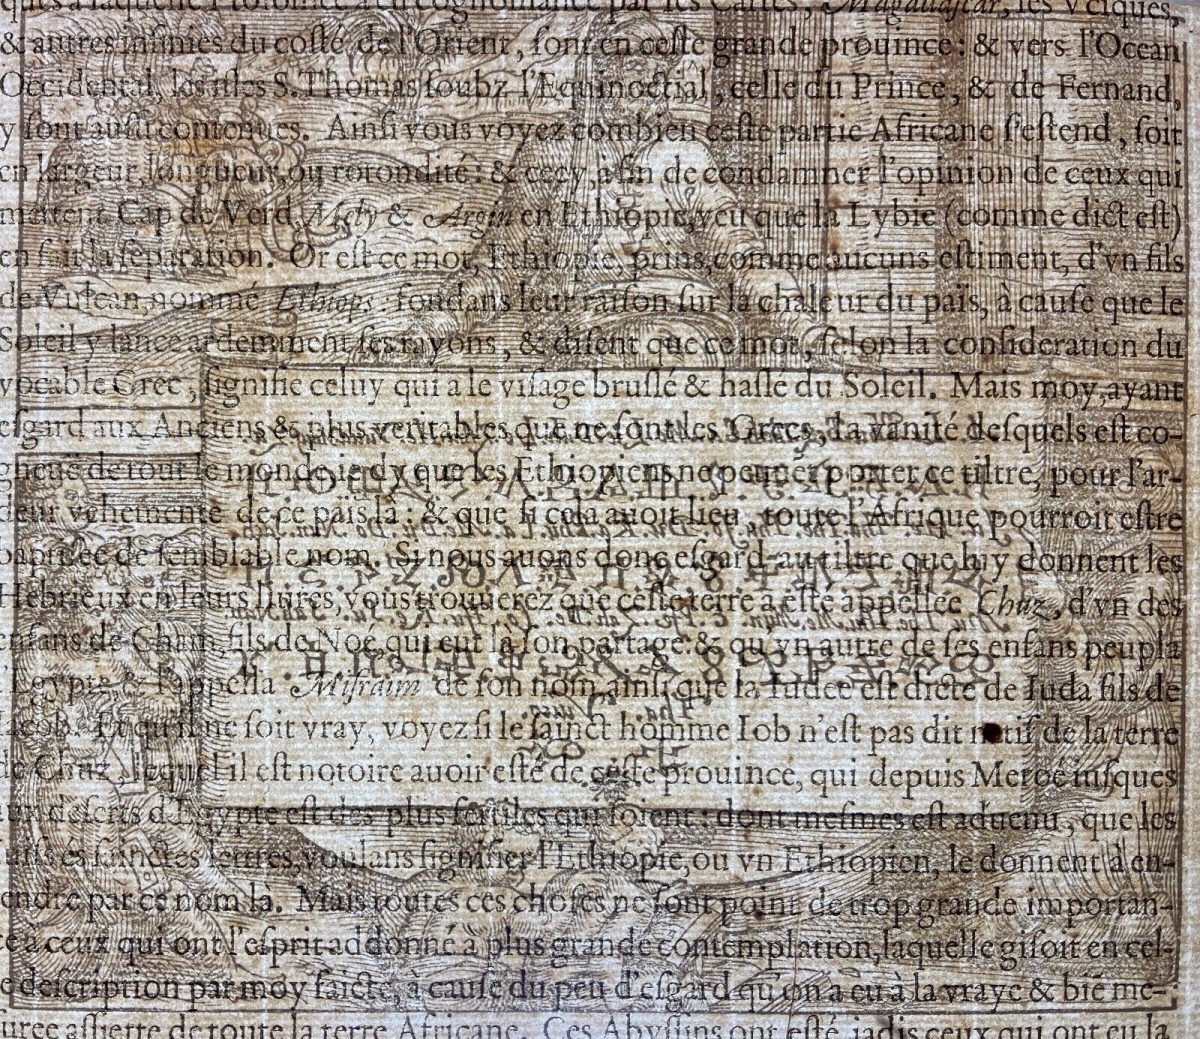 & autres infinies du costé de l'Orient, sont en ceste grande prouince : & vers l'Ocean
Occidental, les isles S. Thomas soubz l'Equinoctial, celle du Prince, & de Fernand,
y sont aussi contenues. Ainsi vous voyez combien ceste partie Africane s'estend, soit
en largeur, longueur, ou rotondité : & cecy, afin de condamner l'opinion de ceux qui
mettent Cap de Verd, & Argin en Ethiopie, veu que la Lybie (comme dict est)
en fait la separation. Or est ce mot, Ethiopie, prins, comme aucuns estiment, d'vn fils
de Vulcan, nommé Ethiops : fondans leur raison sur la chaleur du païs, à cause que le
Soleil y lance ardemment ses rayons, & disent que ce mot, selon la consideration du
vocable Grec, signifie celuy qui a le visage bruslé & haslé du Soleil. Mais moy, ayant
esgard aux Anciens & plus veritables que ne sont les Grecs, la vanité desquels est co-
gneuë de tout le monde, ie dy que les Ethiopiens ne peuuēt porter ce tiltre, pour l'ar-
deur vehemente de ce païs là : & que si cela auoit lieu, toute l'Afrique pourroit estre
baptisee de semblable nom. Si nous auons donc esgard au tiltre que luy donnent les
Hebrieux en leurs liures, vous trouuerez que ceste terre a esté appellee Chuz, d'vn des
enfans de Cham, fils de Noé, qui eut là son partage : & qu'vn autre de ses enfans peupla
l'Egypte & l'appella Misraim de son nom, ainsi que la Iudee est dicte de Iuda fils de
Iacob. Et qu'il ne soit vray, voyez si le sainct homme Iob n'est pas dit natif de la terre
de Chuz, lequel il est notoire auoir esté de ceste prouince, qui depuis Meroé iusques
aux deserts d'Egypte est des plus fertiles qui soient : dont mesmes est aduenu, que les
sainctes lettres, voulans signifier l'Ethiopie, ou vn Ethiopien, le donnent à en-
tendre par ce nom là. Mais toutes ces choses ne sont point de trop grande importan-
ce à ceux qui ont l'esprit addonné à plus grande contemplation, laquelle gisoit en cel-
le description par moy faicte, à cause du peu d'esgard qu'on a eu à la vraye & biē me-
suree assiette de toute la terre Africane. Ces Abyssins ont esté iadis ceux qui ont eu la